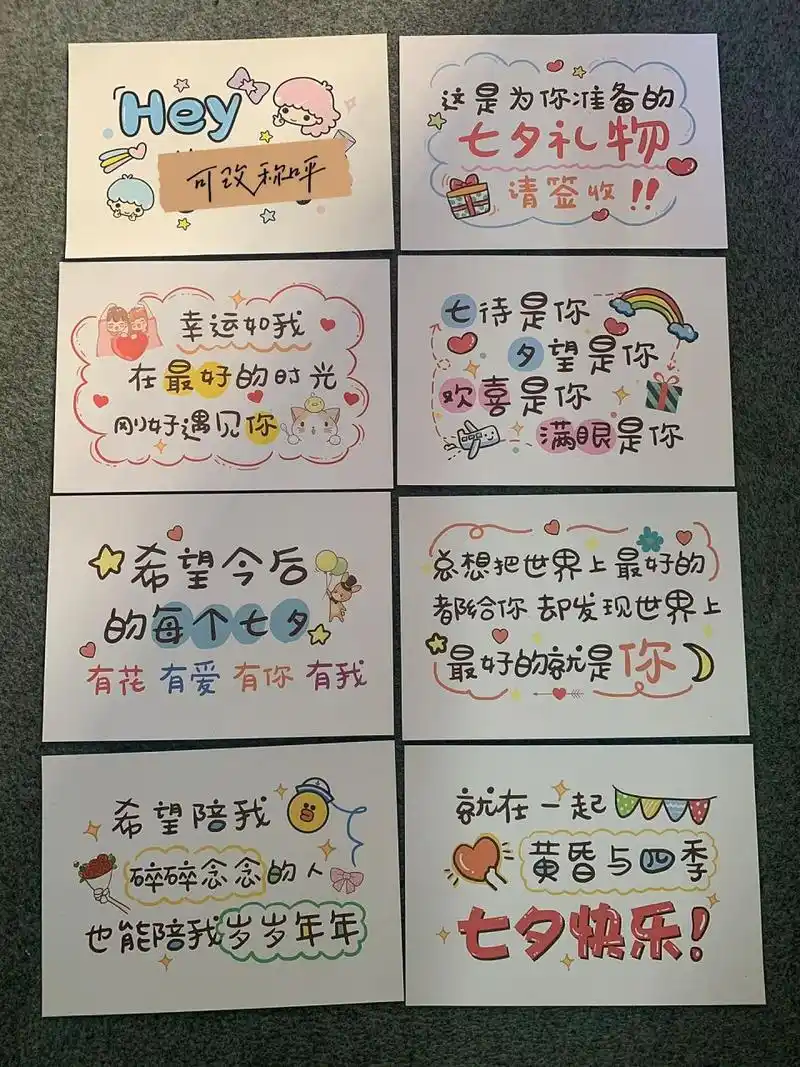 Hey
可改称呼
这是为你准备的
七夕礼物
请签收!!
幸运如我
在最好的时光
刚好遇见你
七待是你
夕望是你
欢喜是你
满眼是你
希望今后
的每个七夕
有花 有爱 有你 有我
总想把世界上最好的
都给你 却发现世界上
最好的就是你
希望陪我
碎碎念念的人
也能陪我岁岁年年
就在一起
黄昏与四季
七夕快乐!